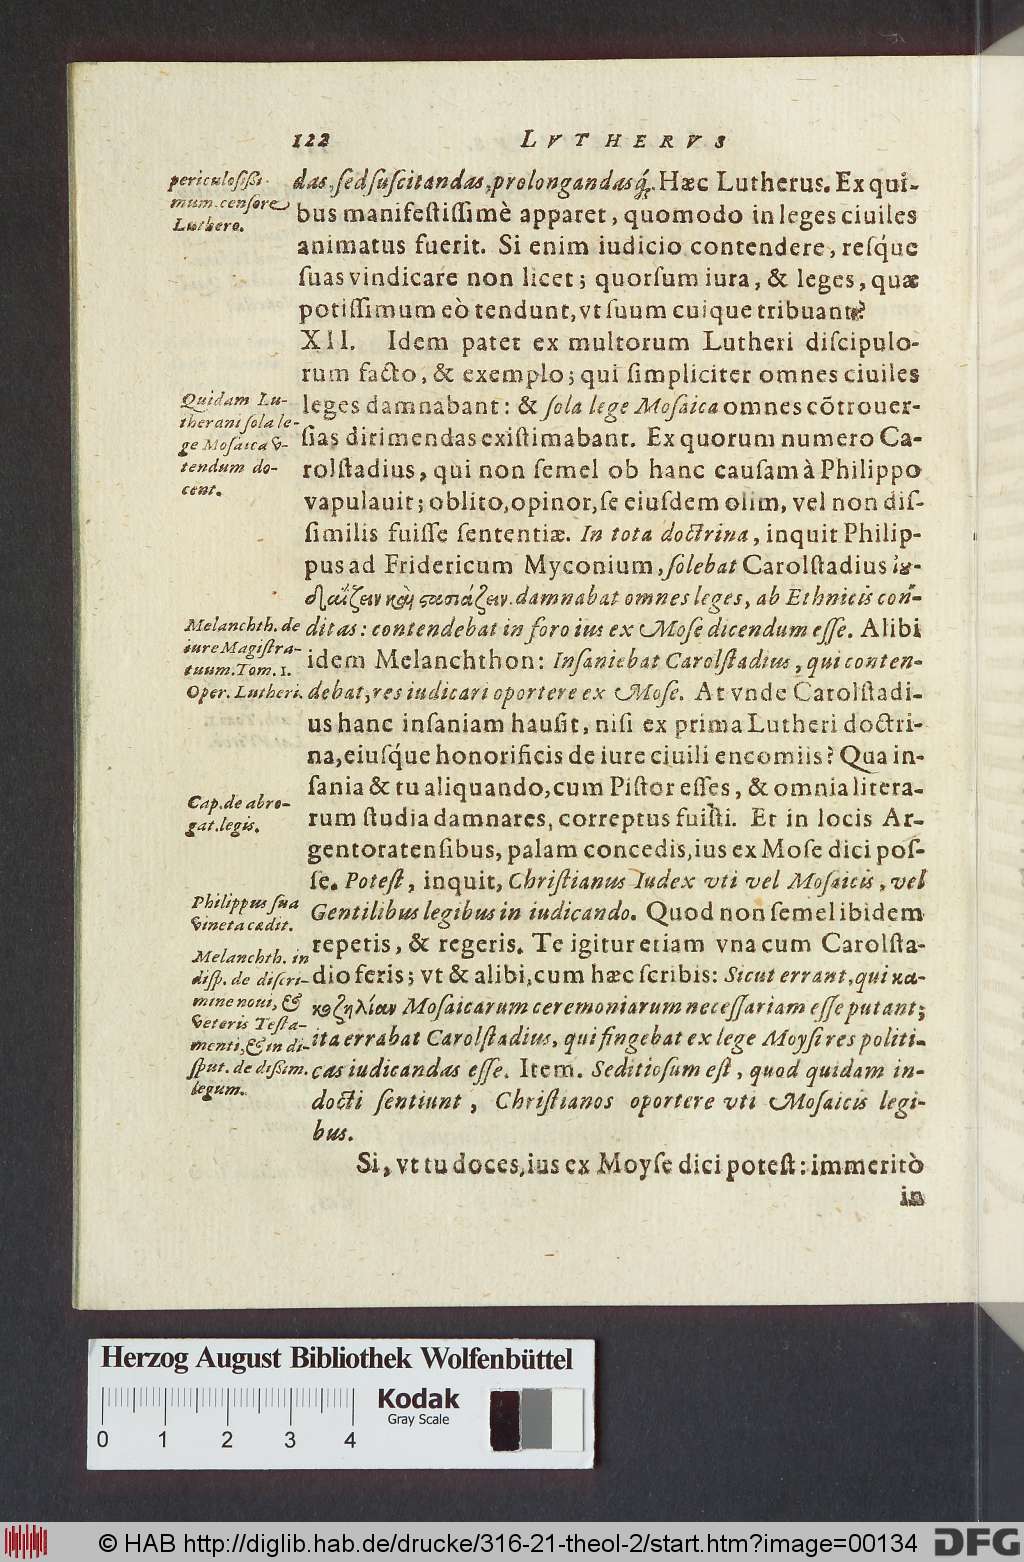 122 LVTHERVS
periculosissi-
mum censore
Luthero.
das, sed suscitandas, prolongandasq́;. Hæc Lutherus. Ex qui-
bus manifestissimè apparet, quomodo in leges ciuiles
animatus fuerit. Si enim iudicio contendere, resq́ue
suas vindicare non licet; quorsum iura, & leges, quæ
potissimum eò tendunt, vt suum cuique tribuant?
XII. Idem patet ex multorum Lutheri discipulo-
rum facto, & exemplo; qui simpliciter omnes ciuiles
Quidam Lu-
therani sola le-
ge Mosaica v-
tendum do-
cent.
leges damnabant: & sola lege Mosaica omnes cõtrouer-
sias dirimendas existimabant. Ex quorum numero Ca-
rolstadius, qui non semel ob hanc causam à Philippo
vapulauit; oblito, opinor, se eiusdem olim, vel non dis-
similis fuisse sententiæ. In tota doctrina, inquit Philip-
pus ad Fridericum Myconium, solebat Carolstadius ἰȣ-
δαΐζειν καὶ στασιάζειν. damnabat omnes leges, ab Ethnicis con-
Melanchth. de
iure Magistra-
tuum. Tom. 1.
Oper. Lutheri.
ditas: contendebat in foro ius ex Mose dicendum esse. Alibi
idem Melanchthon: Insaniebat Carolstadius, qui conten-
debat, res iudicari oportere ex Mose. At vnde Carolstadi-
us hanc insaniam hausit, nisi ex prima Lutheri doctri-
na, eiusq́ue honorificis de iure ciuili encomiis? Qua in-
sania & tu aliquando, cum Pistor esses, & omnia litera-
Cap. de abro-
gat. legis.
rum studia damnares, correptus fuisti. Et in locis Ar-
gentoratensibus, palam concedis, ius ex Mose dici pos-
se. Potest, inquit, Christianus Iudex vti vel Mosaicis, vel
Philippus sua
vineta cædit.
Gentilibus legibus in iudicando. Quod non semel ibidem
repetis, & regeris. Te igitur etiam vna cum Carolsta-
Melanchth. in
disp. de discri-
mine noui, &
veteris Testa-
menti, & in di-
sput. de dissim.
legum.
dio feris; vt & alibi, cum hæc scribis: Sicut errant, qui κα-
κοζηλίαν Mosaicarum ceremoniarum necessariam esse putant;
ita errabat Carolstadius, qui fingebat ex lege Moysi res politi-
cas iudicandas esse. Item. Seditiosum est, quod quidam in-
docti sentiunt, Christianos oportere vti Mosaicis legi-
bus.
Si, vt tu doces, ius ex Moyse dici potest: immeritò
in
Herzog August Bibliothek Wolfenbüttel
Kodak
Gray Scale
0 1 2 3 4
© HAB http://diglib.hab.de/drucke/316-21-theol-2/start.htm?image=00134
DFG